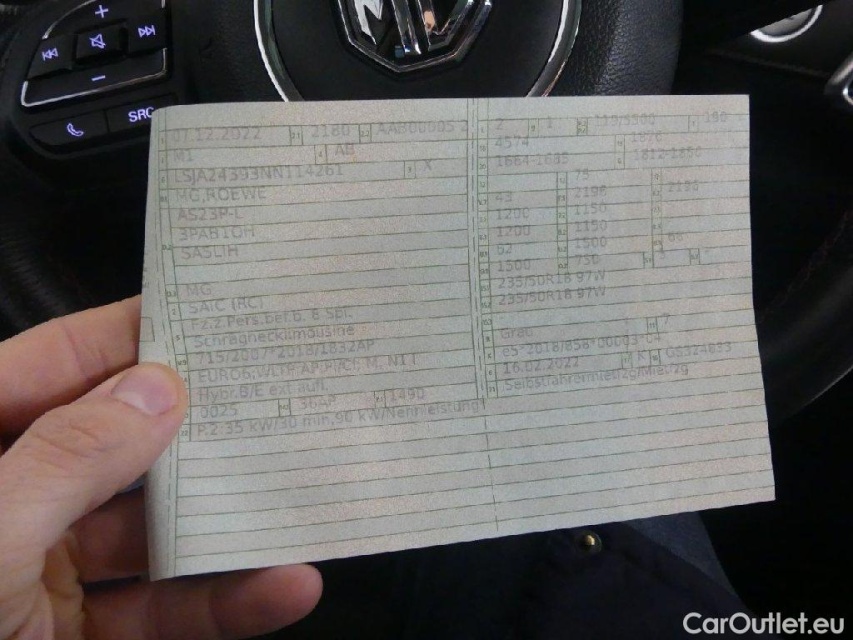 SRC
01.12.2022 2180 AAB00005 2
M1 AB
LSJA24393NN114261 X
MG,ROEWE
AS23P-L
3PAB1OH
SASLIH
MG
SAIC (RC)
Fz.z.Pers.bef.b. 8 Spl.
Schräghecklimousine
715/2007*2018/1832AP
EURO6;WLTP,AP,PI/CI, M, N1 I
Hybr.B/E ext aufl.
0025 36AP 1490
P.2:35 kW/30 min,90 kW/Nennleistung
2 1 119/5500 190
4574 1876
1664-1685 1812-1850
75
43 2196 2196
1200 1150
1200 1150
62 1500 66
1500 750
235/50R18 97W
235/50R18 97W
Grau 7
e5*2018/858*00003*04
16.02.2022 K
Selbstfahrermietzg/Mietzg
CarOutlet.eu